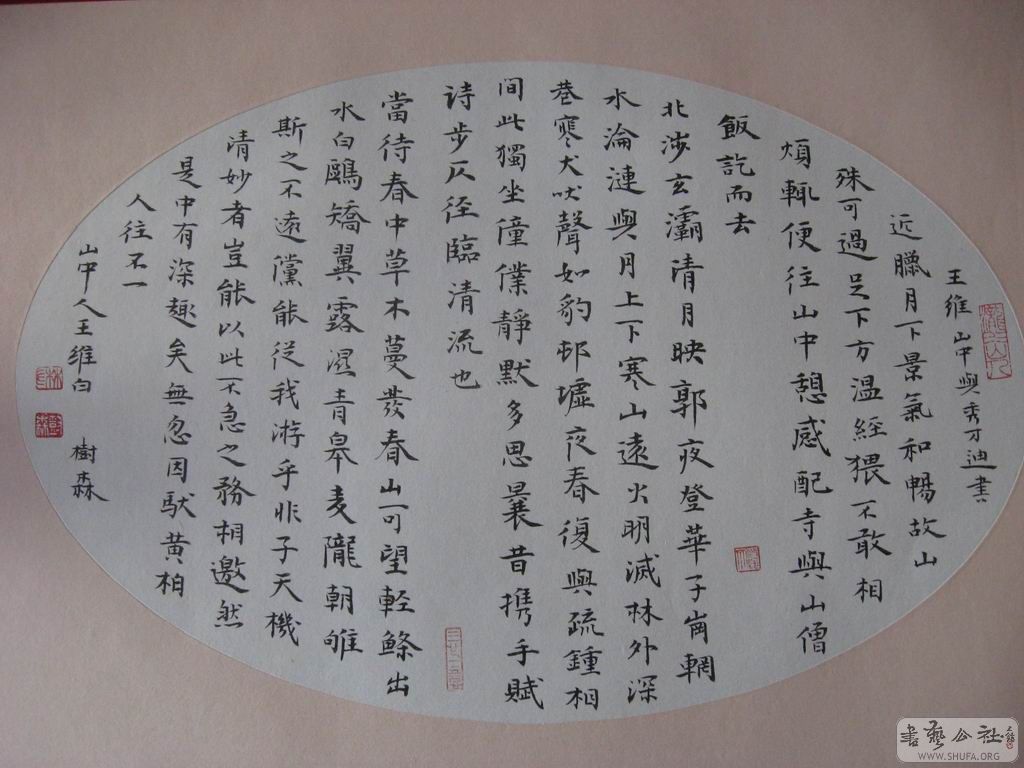 王維山中與秀才迪書
近臘月下景氣和暢故山
殊可過足下方温經猥不敢相
煩輒便往山中憩感配寺與山僧
飯訖而去
北涉玄灞清月映郭夜登華子崗輞
水淪漣與月上下寒山遠火明滅林外深
巷寒犬吠聲如豹邨墟夜舂復與疏鍾相
間此獨坐僮僕靜默多思曩昔携手賦
诗步仄徑臨清流也
當待春中草木蔓發春山可望輕鰷出
水白鷗矯翼露濕青皋麦隴朝雊
斯之不遠儻能從我游乎非子天機
清妙者豈能以此不急之務相邀然
是中有深趣矣無忽因馱黃柏
人往不一
山中人王維白
樹森
書藝公社
WWW.SHUFA.ORG